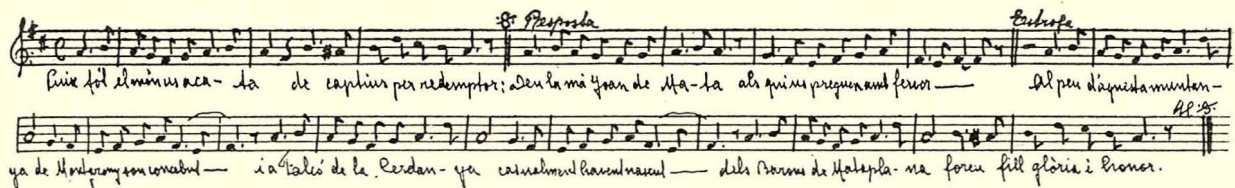 :S: Resposta Estrofa
Puix fòt el mínus aca-ta de captius per redemptor: Deu la mà Joan de Ma-ta als qui us preguen amb fervor— Al peu d'aquesta muntan-
Al :S:
ya de Montgrony sou concebut— i a Falcó de la Cerdan-ya casualment havent nascut— dels Barons de Matapla-na foreu fill glòria i honor.